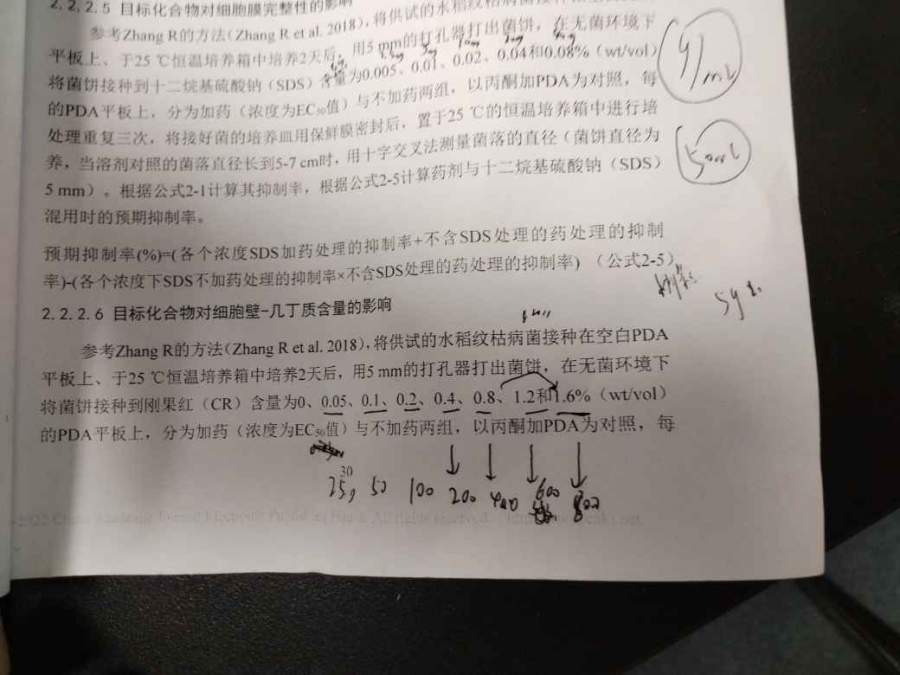 2.2.2.5 目标化合物对细胞膜完整性的影响
参考Zhang R的方法(Zhang R et al. 2018), 将供试的水稻纹枯病菌接种
平板上、于25 ℃恒温培养箱中培养2天后，用5 mm的打孔器打出菌饼，在无菌环境下
将菌饼接种到十二烷基硫酸钠（SDS）含量为0.005、0.01、0.02、0.04和0.08%（wt/vol）
的PDA平板上，分为加药（浓度为EC₅₀值）与不加药两组，以丙酮加PDA为对照，每
处理重复三次，将接好菌的培养皿用保鲜膜密封后，置于25 ℃的恒温培养箱中进行培
养，当溶剂对照的菌落直径长到5-7 cm时，用十字交叉法测量菌落的直径（菌饼直径为
5 mm）。根据公式2-1计算其抑制率，根据公式2-5计算药剂与十二烷基硫酸钠（SDS）
混用时的预期抑制率。
50mL
预期抑制率(%)=(各个浓度SDS加药处理的抑制率+不含SDS处理的药处理的抑制
率)-(各个浓度下SDS不加药处理的抑制率×不含SDS处理的药处理的抑制率) （公式2-5）
2.2.2.6 目标化合物对细胞壁-几丁质含量的影响
参考Zhang R的方法(Zhang R et al. 2018), 将供试的水稻纹枯病菌接种在空白PDA
平板上、于25 ℃恒温培养箱中培养2天后，用5 mm的打孔器打出菌饼，在无菌环境下
将菌饼接种到刚果红（CR）含量为0、0.05、0.1、0.2、0.4、0.8、1.2和1.6%（wt/vol）
的PDA平板上，分为加药（浓度为EC₅₀值）与不加药两组，以丙酮加PDA为对照，每
30
25, 50 100 200 400 600 800